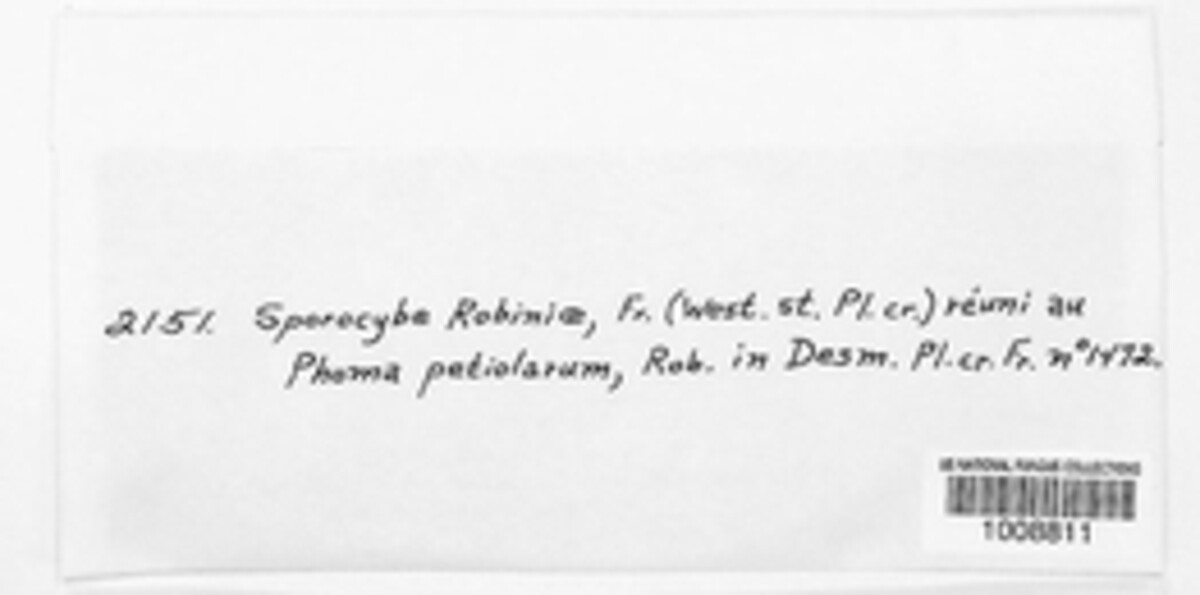 2151. Sporocybe Robiniæ, Fr. (West. st. Pl. cr.) réuni au
Phoma petiolarum, Rob. in Desm. Pl. cr. Fr. nº 1472.
US NATIONAL FUNGUS COLLECTIONS
1008811